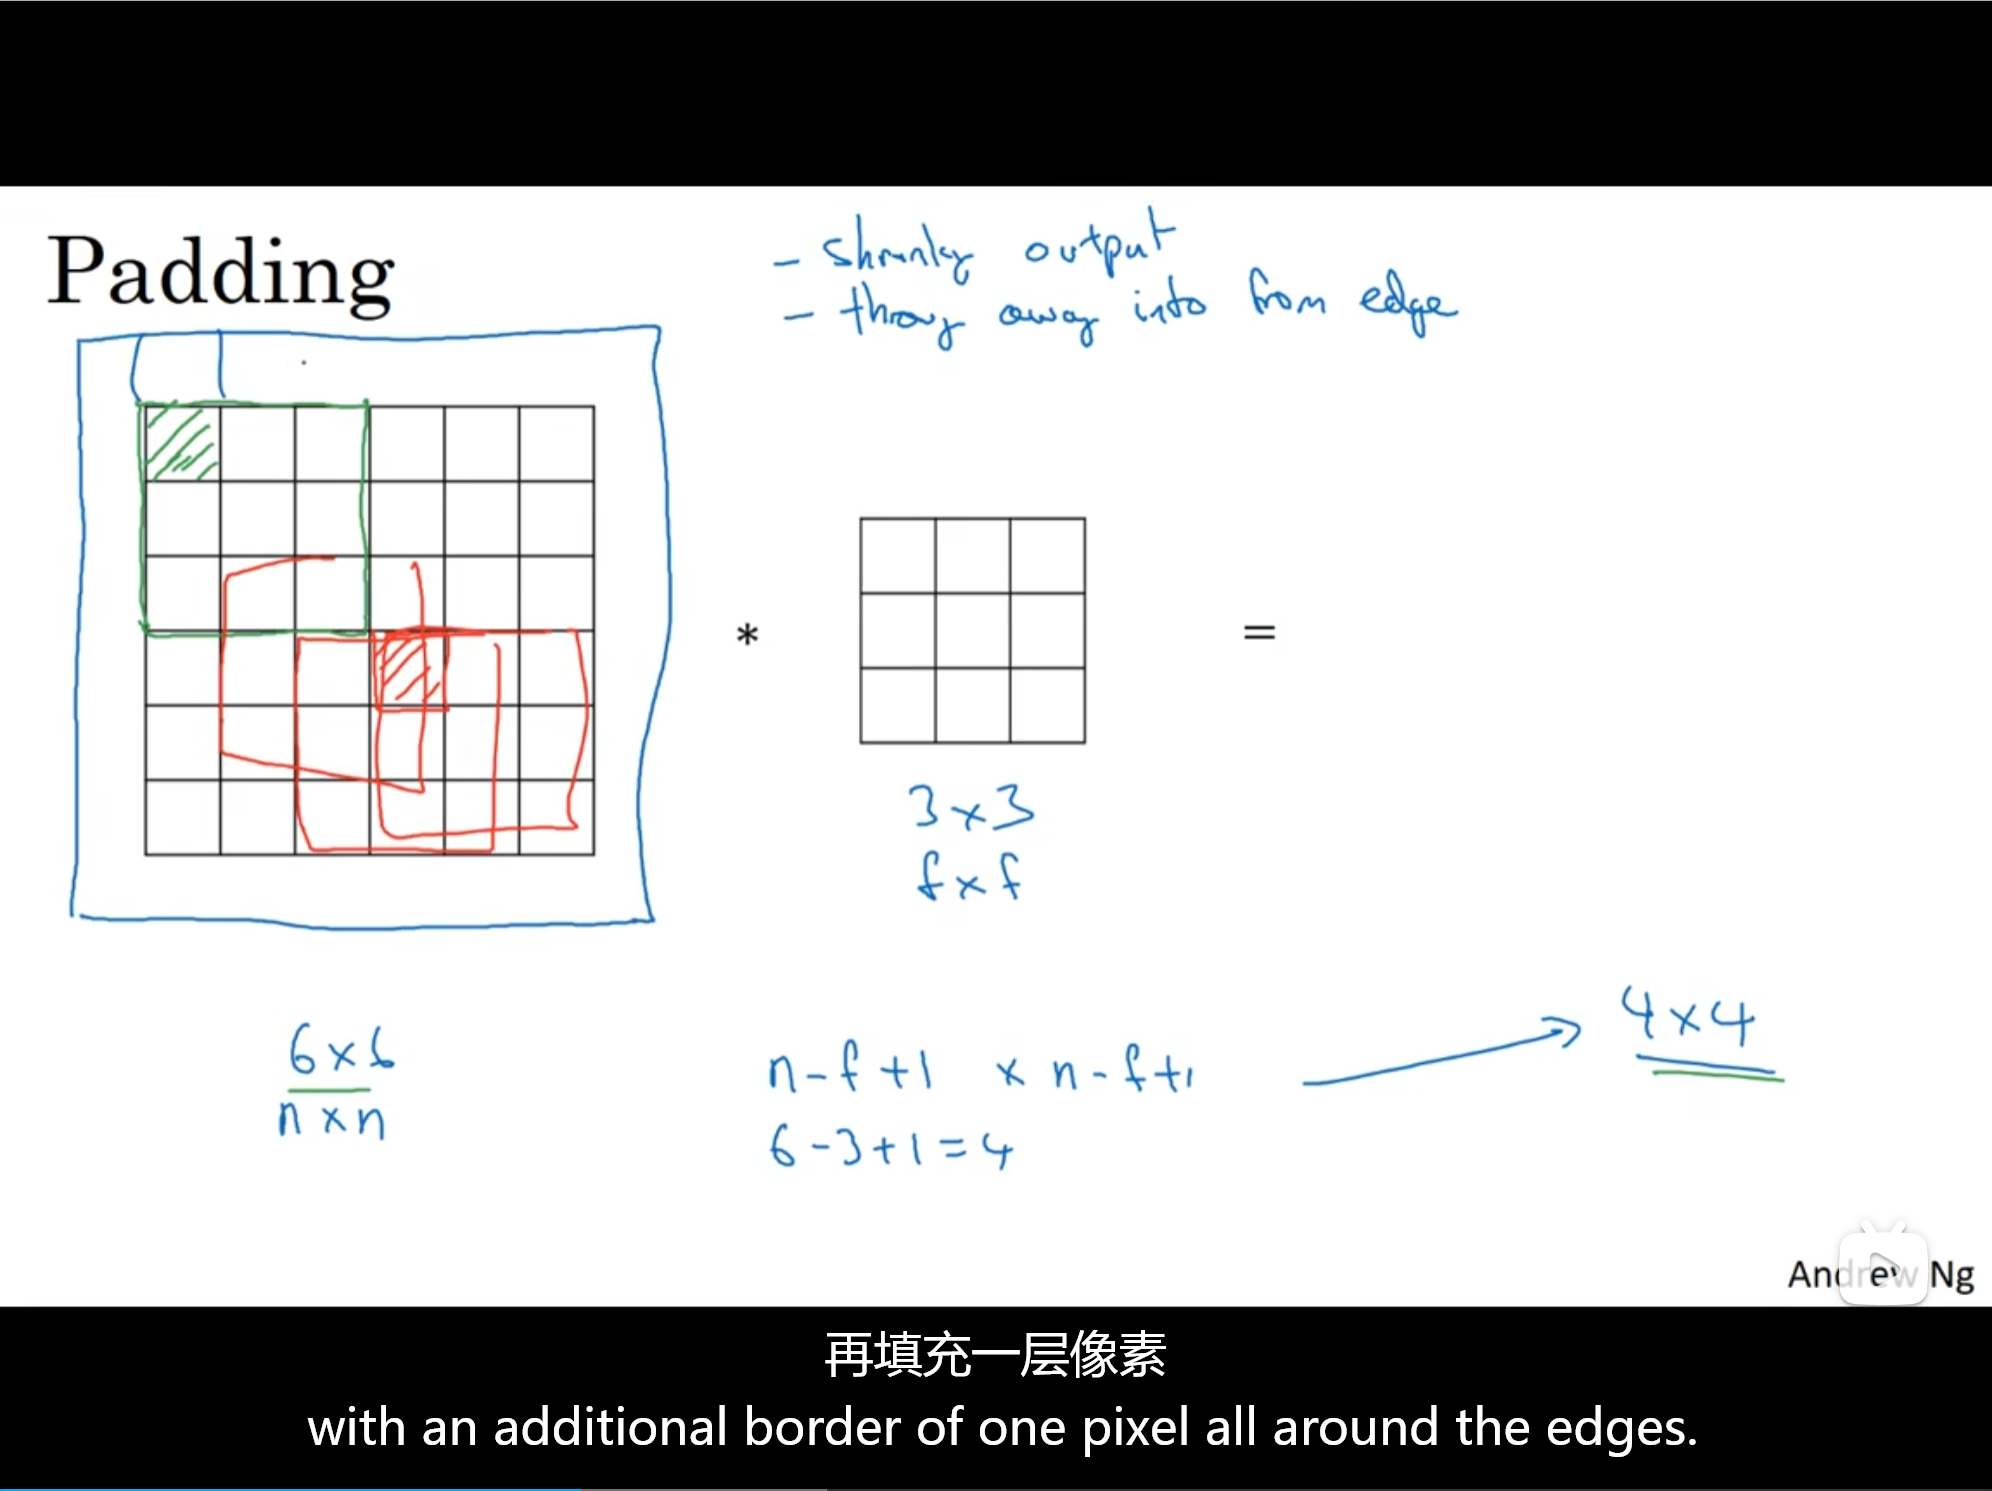 Padding
- shrinky output
- throwy away info from edge
*
=
3x3
fxf
6x6
nxn
n-f+1 x n-f+1
6-3+1=4
4x4
Andrew Ng
再填充一层像素
with an additional border of one pixel all around the edges.